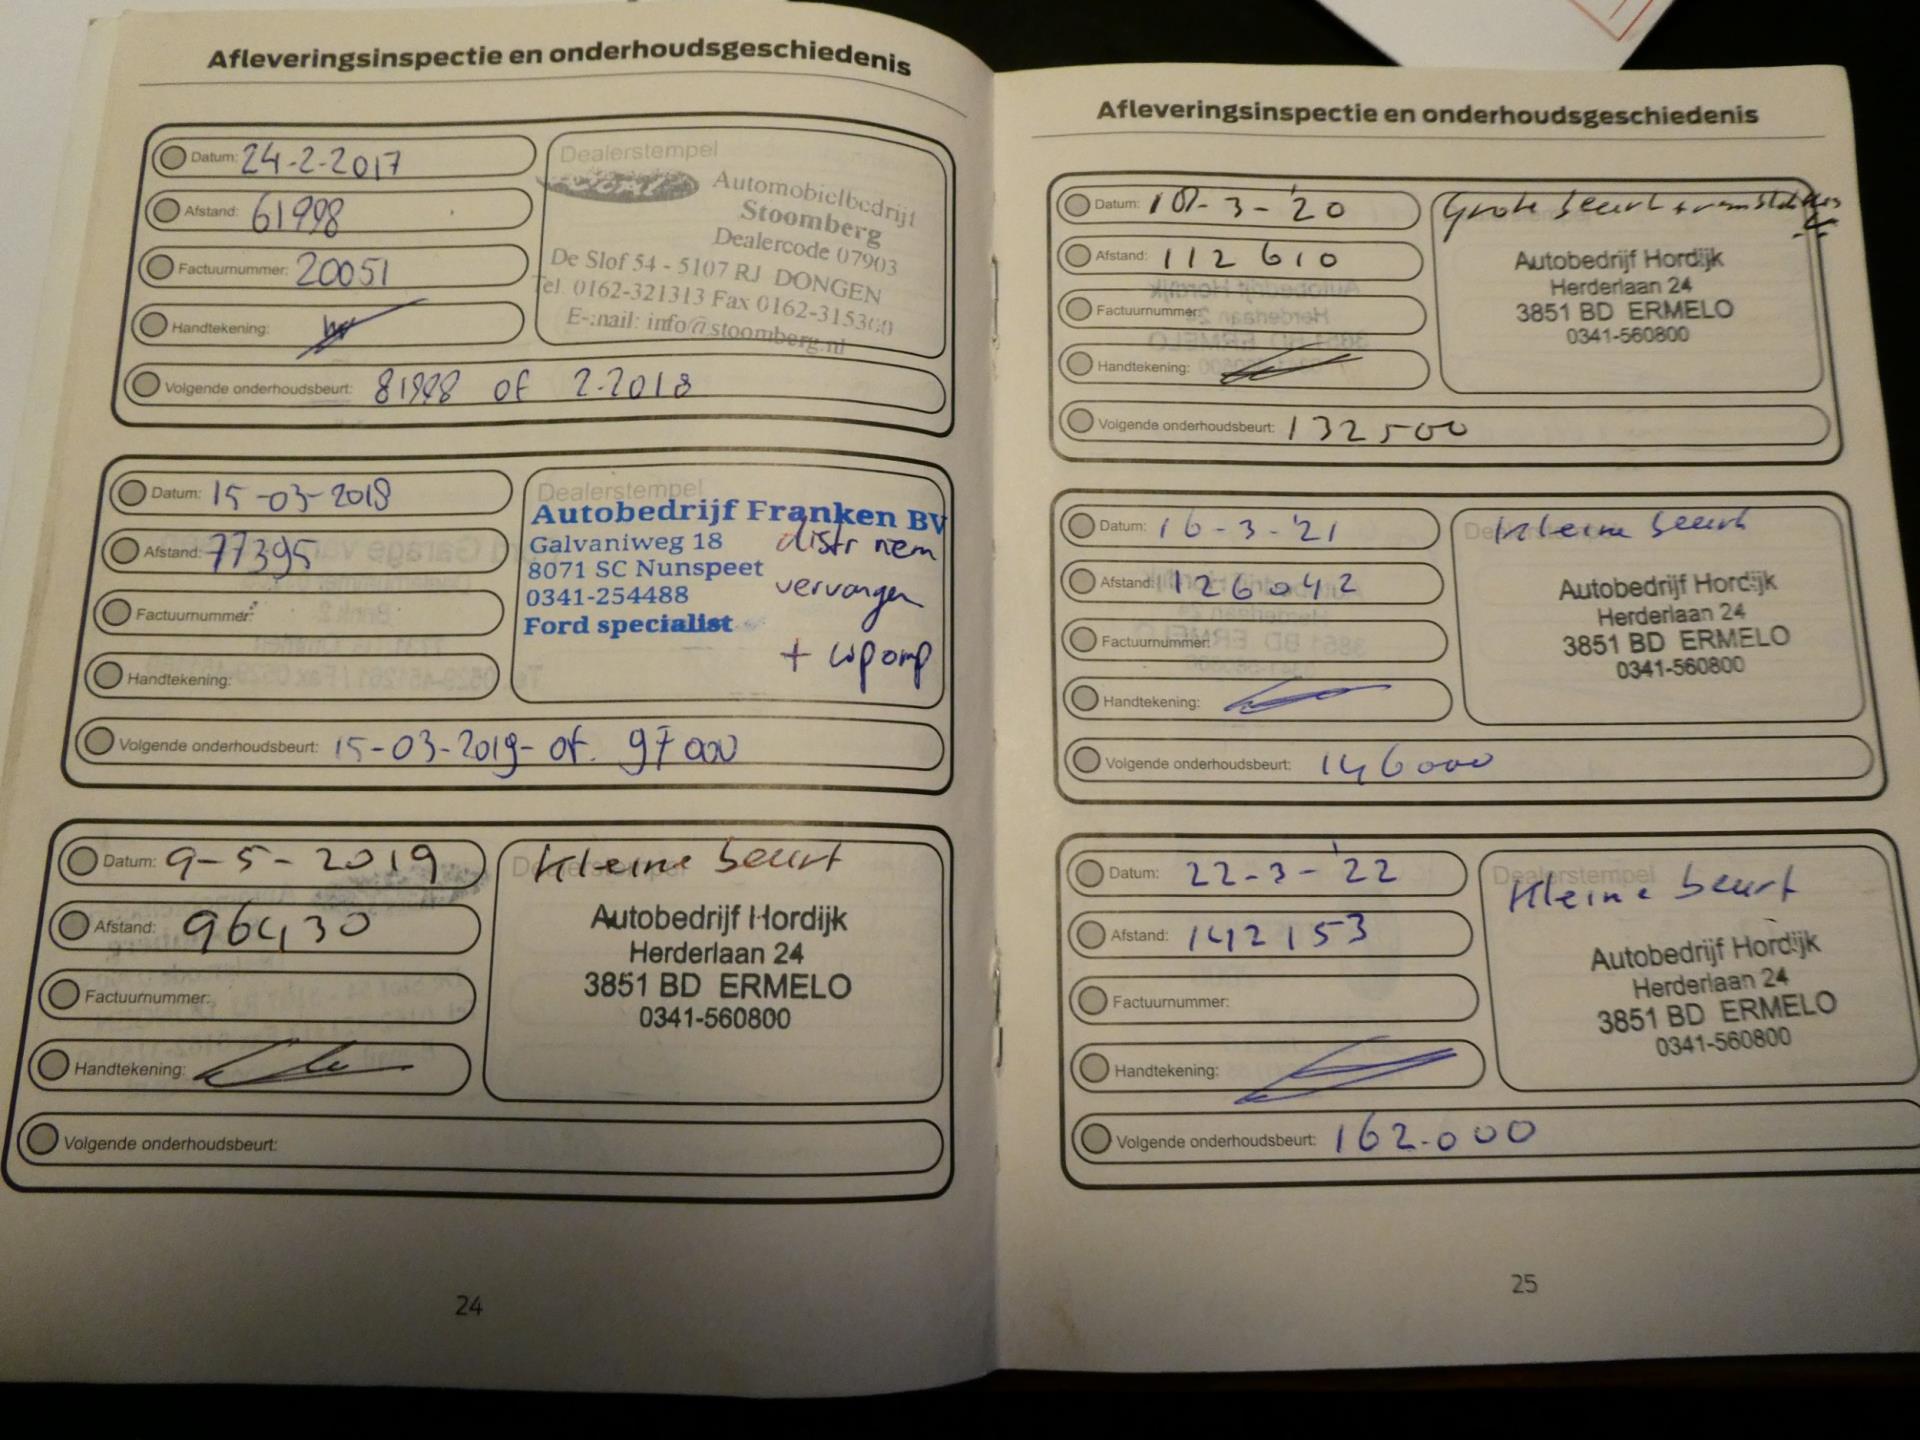 Afleveringsinspectie en onderhoudsgeschiedenis
Datum: 24-2-2017
Afstand: 61998
Factuurnummer: 20051
Handtekening:
Dealerstempel
Automobielbedrijf
Stoomberg
Dealercode 07903
De Slof 54 - 5107 RJ DONGEN
Tel. 0162-321313 Fax 0162-315300
E-mail: info@stoomberg.nl
Volgende onderhoudsbeurt: 81998 of 2-2018
Datum: 15-03-2018
Afstand: 77395
Factuurnummer:
Handtekening:
Dealerstempel
Autobedrijf Franken BV
Galvaniweg 18
8071 SC Nunspeet
0341-254488
Ford specialist
distr riem
vervangen
+ w pomp
Volgende onderhoudsbeurt: 15-03-2019- of. 97000
Datum: 9-5-2019
Afstand: 96430
Factuurnummer:
Handtekening:
Dealerstempel
Kleine beurt
Autobedrijf Hordijk
Herderlaan 24
3851 BD ERMELO
0341-560800
Volgende onderhoudsbeurt:
24
Afleveringsinspectie en onderhoudsgeschiedenis
Datum: -3-'20
Afstand: 112610
Factuurnummer:
Handtekening:
Grote beurt +
Autobedrijf Hordijk
Herderlaan 24
3851 BD ERMELO
0341-560800
Volgende onderhoudsbeurt: 132500
Datum: 16-3-'21
Afstand: 126042
Factuurnummer:
Handtekening:
Kleine beurt
Autobedrijf Hordijk
Herderlaan 24
3851 BD ERMELO
0341-560800
Volgende onderhoudsbeurt: 146000
Datum: 22-3-'22
Afstand: 142153
Factuurnummer:
Handtekening:
Dealerstempel
Kleine beurt
Autobedrijf Hordijk
Herderlaan 24
3851 BD ERMELO
0341-560800
Volgende onderhoudsbeurt: 162.000
25